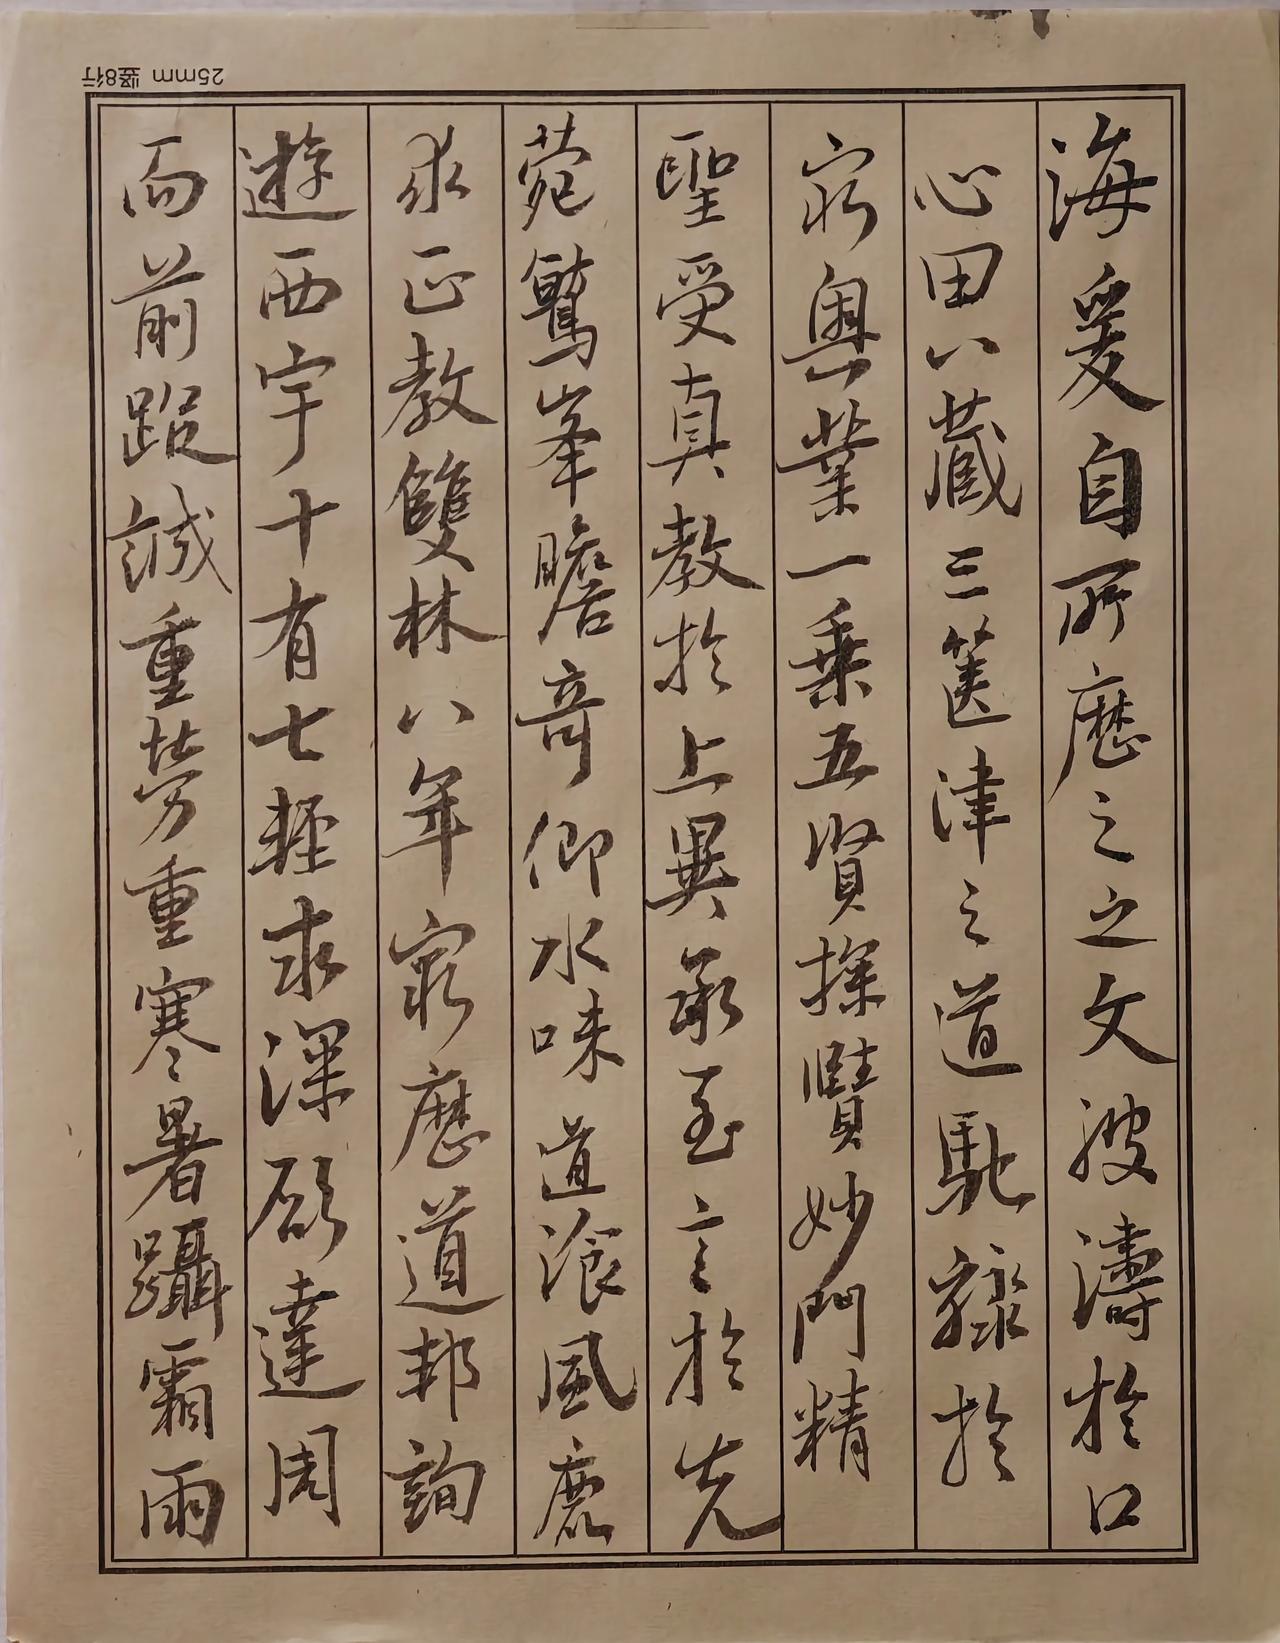 25mm 竖8行
海爰自所歷之之文波濤於口
心田八藏三篋津之道馳驟於
窮奧業一乘五賢探賾妙門精
聖受真教於上異承至言於先
苑鷲峯瞻奇仰水味道飡風鹿
求正教雙林八年窮歷道邦詢
遊西宇十有七輕求深願達周
而前蹤誠重勞重寒暑躡霜雨